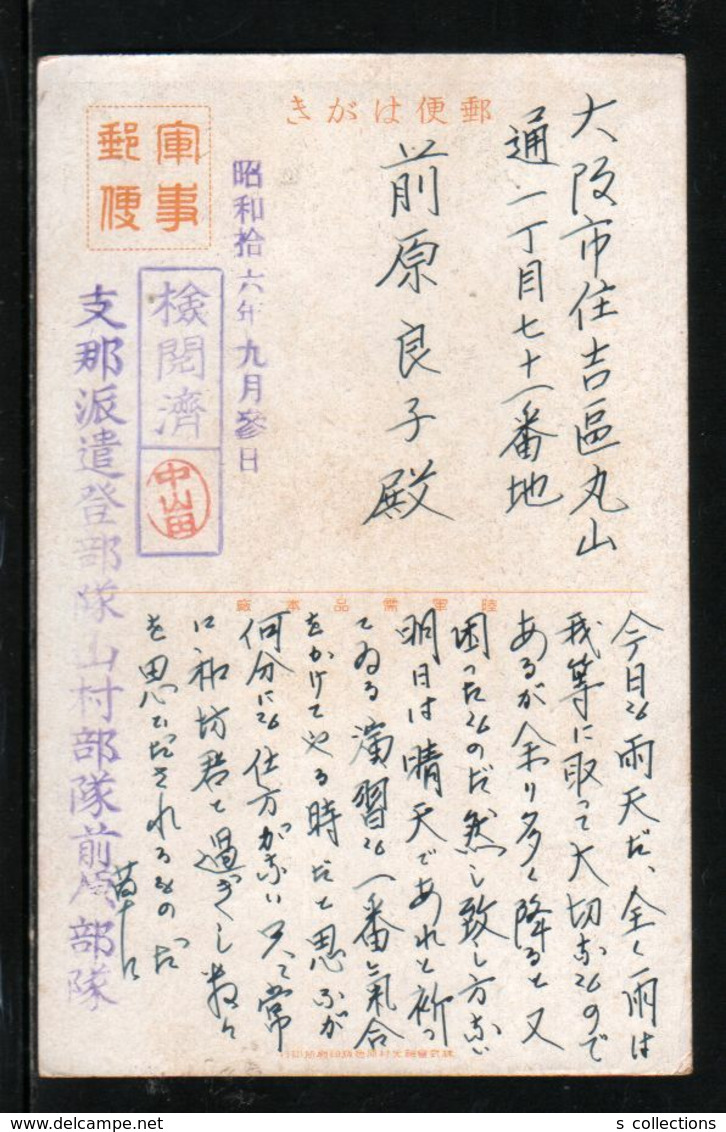 郵便はがき
軍事
郵便
大阪市住吉區丸山
通一丁目七十一番地
前原良子殿
昭和拾六年九月参日
検閲濟
中山田
支那派遣登部隊山村部隊前原部隊
陸軍需品本廠
今日も雨天だ、全く雨は
我等に取って大切なもので
あるが余り多く降ると又
困ったものだ然し致し方ない
明日は晴天であれと祈っ
てゐる演習も一番氣合
をかけてやる時だと思ふが
何分にも仕方がない 只々常
に 坊君と過ぎし数々
を思ひだされるものだ
s collections